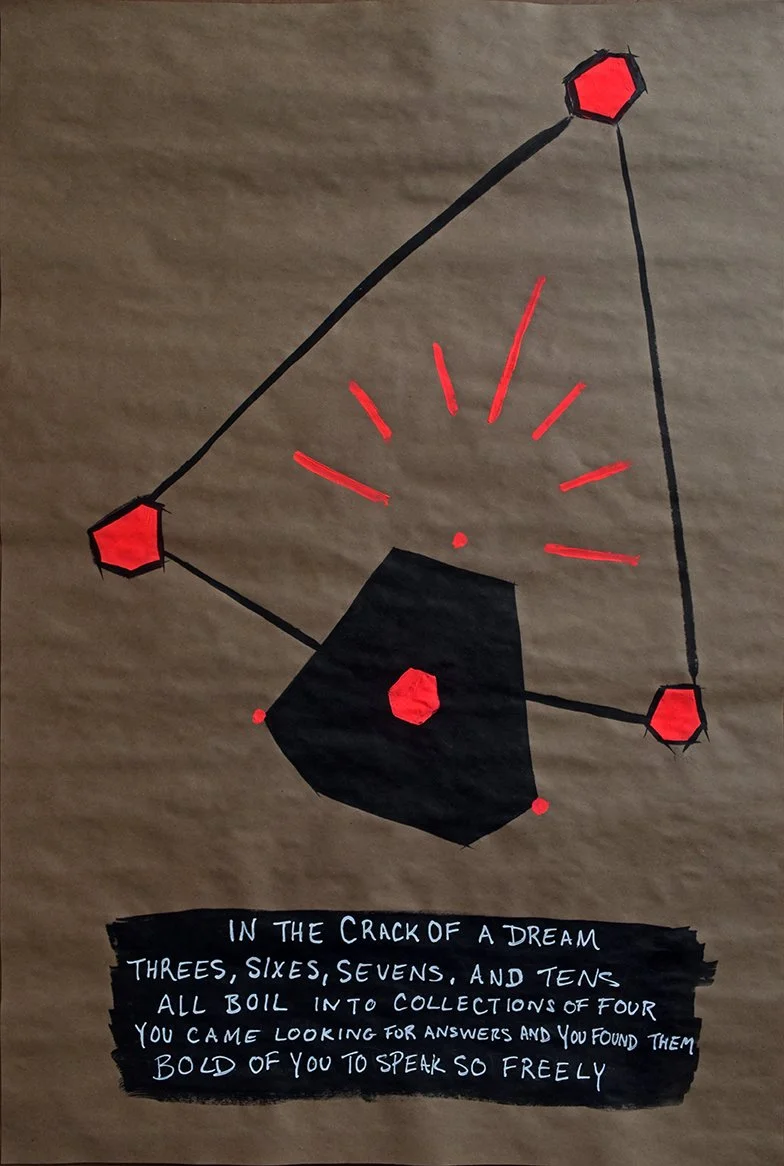 IN THE CRACK OF A DREAM
THREES, SIXES, SEVENS, AND TENS
ALL BOIL INTO COLLECTIONS OF FOUR
YOU CAME LOOKING FOR ANSWERS AND YOU FOUND THEM
BOLD OF YOU TO SPEAK SO FREELY